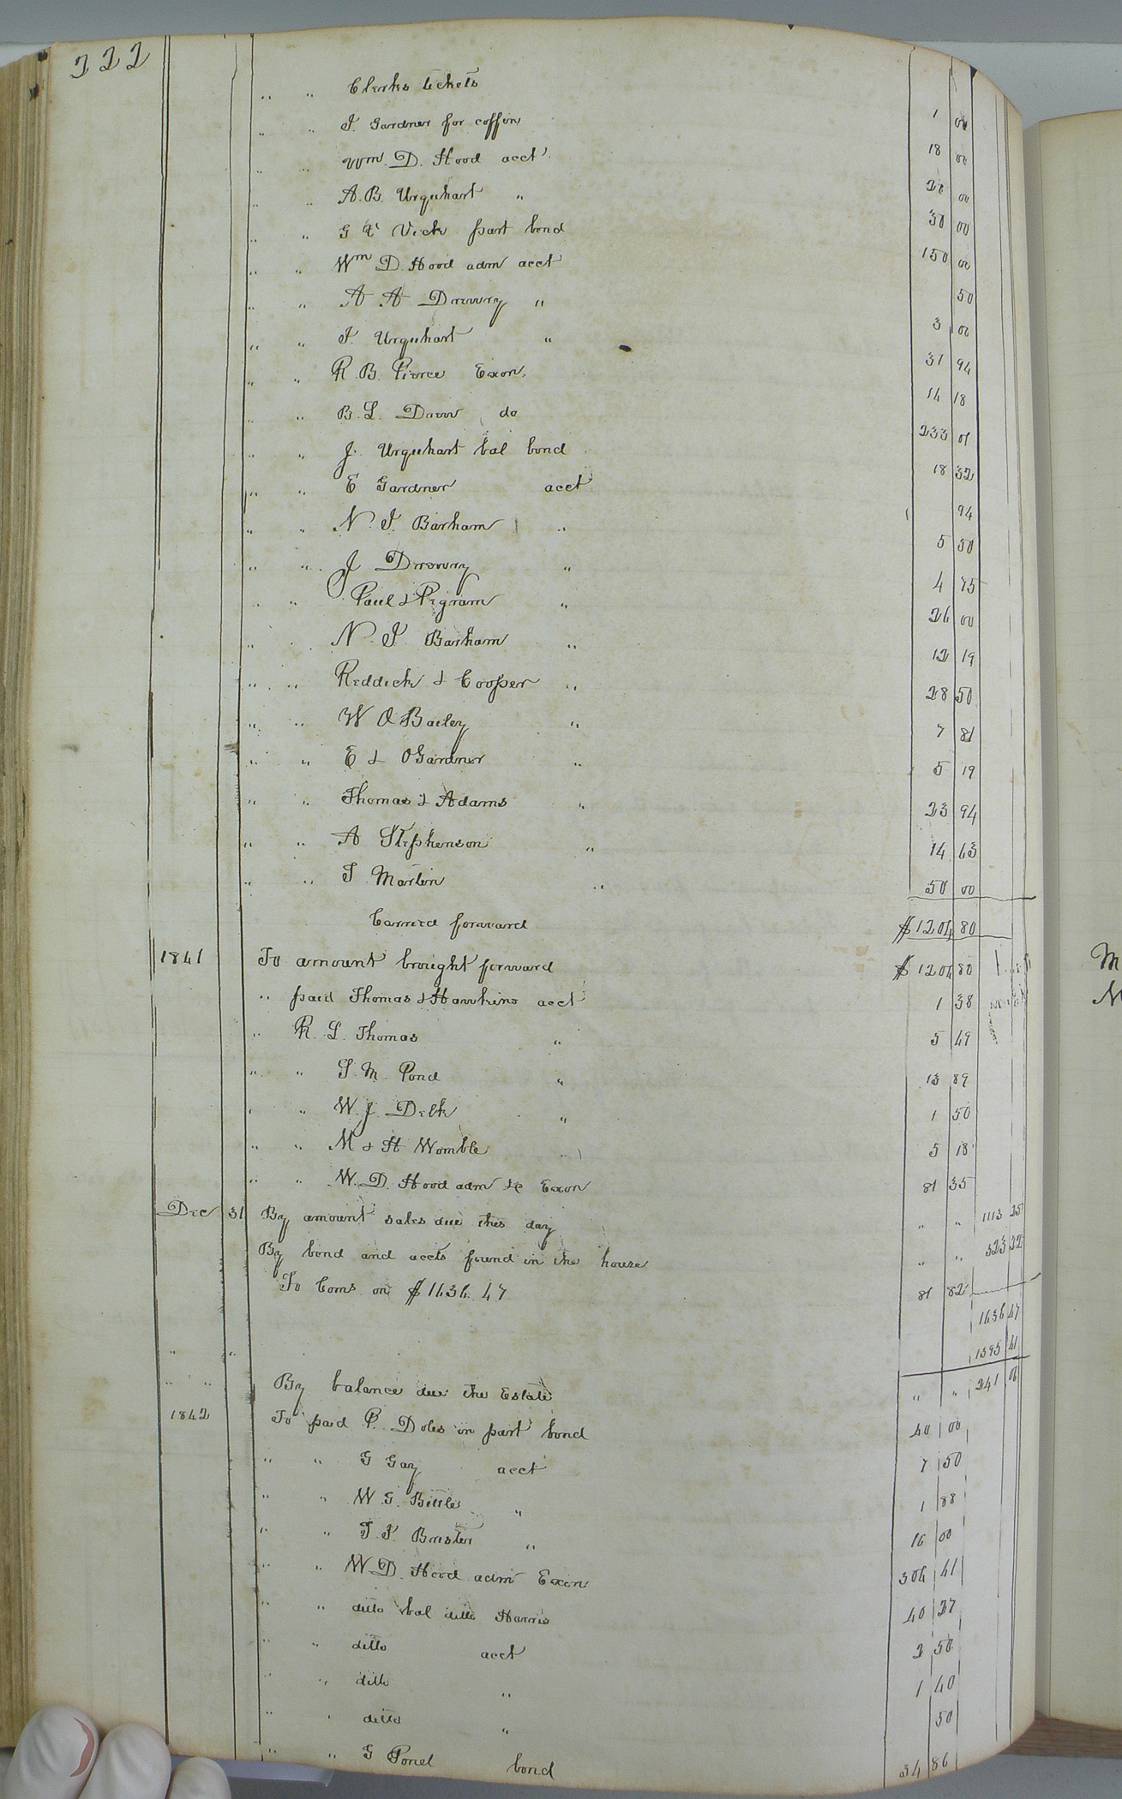 222
" " Clerks tickets 1 00
" " J. Gardner for coffin 18 00
" " Wm. D. Hood acct 26 00
" " A. B. Urquhart " 30 00
" " G W Vick part bond 150 00
" " Wm D. Hood adm acct 50
" " A A Drewry " 3 00
" " J. Urquhart " 31 94
" " R. B. Pierce Exon. 14 18
" " B. L. Drew do 233 01
" " J. Urquhart bal bond 18 32
" " E Gardner acct 94
" " N. J. Barham " 5 50
" " J Drewry " 4 75
" " Paul & Pegram " 26 00
" " N. J. Barham " 12 19
" " Reddick & Cooper " 28 50
" " W O Bailey " 7 81
" " E & O Gardner " 5 19
" " Thomas & Adams " 23 94
" " A Stephenson " 14 63
" " T Martin " 50 00
Carried forward $1204 80
1841 To amount brought forward $1204 80
" paid Thomas & Hawkins acct 1 38
" R. L. Thomas " 5 49
" " S. M. Pond " 13 89
" " W. J. Delk " 1 50
" " M & H Womble " 5 18
" " W. D. Hood adm &c Exon 81 35
Dec 31 By amount sales due this day " " 1113 25
By bond and accts found in the house " " 523 22
To Coms on $1636.47 81 82
1636 47
" " 1395 41
" " By balance due the Estate " " 241 06
1842 To paid P. Doles in part bond 40 00
" " G Gay acct 7 50
" " W. G. Bittle " 1 88
" " " 16 00
" " W. D. Hood adm Exon 304 41
" " ditto bal ditto Harris 40 27
" " ditto acct 2 50
" " ditto " 1 40
" " ditto " 50
" " G Pond bond 34 86